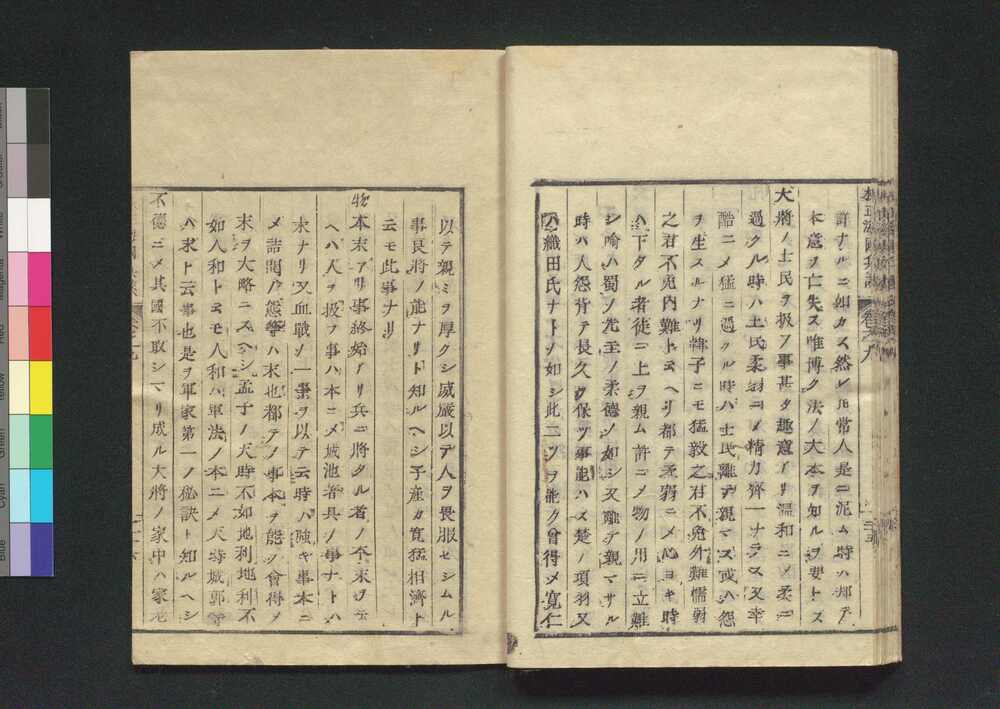 許ナルニ如カス然レ𪜈常人是ニ泥ム時ハ却テ
本意ヲ亡失ス唯博ク法ノ大本ヲ知ルヲ要トス
大將ノ士民ヲ扱フ事甚タ趣意アリ温和ニメ柔ニ
過クル時ハ士民柔弱ニメ精力齊一ナラス又幸
酷ニメ猛ニ過クル時ハ士民離テ親マス或ハ怨
ヲ生スルナリ韓子ニモ猛毅之君不免外難懦弱
之君不免内難トモヘリ都テ柔弱ニメ心ヨキ時
ハ下タル者徒ニ上ヲ親ム許ニメ物ノ用ニ立難
シ喩ハ蜀ノ先主ノ柔徳ノ如シ又離テ親マサル
時ハ人怨背テ長久ヲ保ツ事能ハス楚ノ項羽又
織田氏ナトノ如シ此二ツヲ能ク會得メ寛仁
以テ親ミヲ厚クシ威嚴以テ人ヲ畏服セシムル
事良將ノ能ナリト知ルヘシ子産カ寛猛相濟ト
云モ此事ナリ
物本末アリ事終始アリ兵ニ將タル者ノ本末ヲ云
ヘハ人ヲ扱フ事ハ本ニメ城池者具ノ事ナトハ
末ナリ又血戰ノ一業ヲ以テ云時ハ強キ事本ニ
メ詰開ノ態等ハ末也都テノ事本ヲ能ク會得メ
末ヲ大略ニスヘシ孟子ノ天時不如地利地利不
如人和トモモ人和ハ軍法ノ本ニメ天時城郭等
ハ末ト云事也是ヲ軍家第一ノ秘訣ト知ルヘシ
不徳ニメ其國不取シマリ成ル大將ノ家中ハ家老